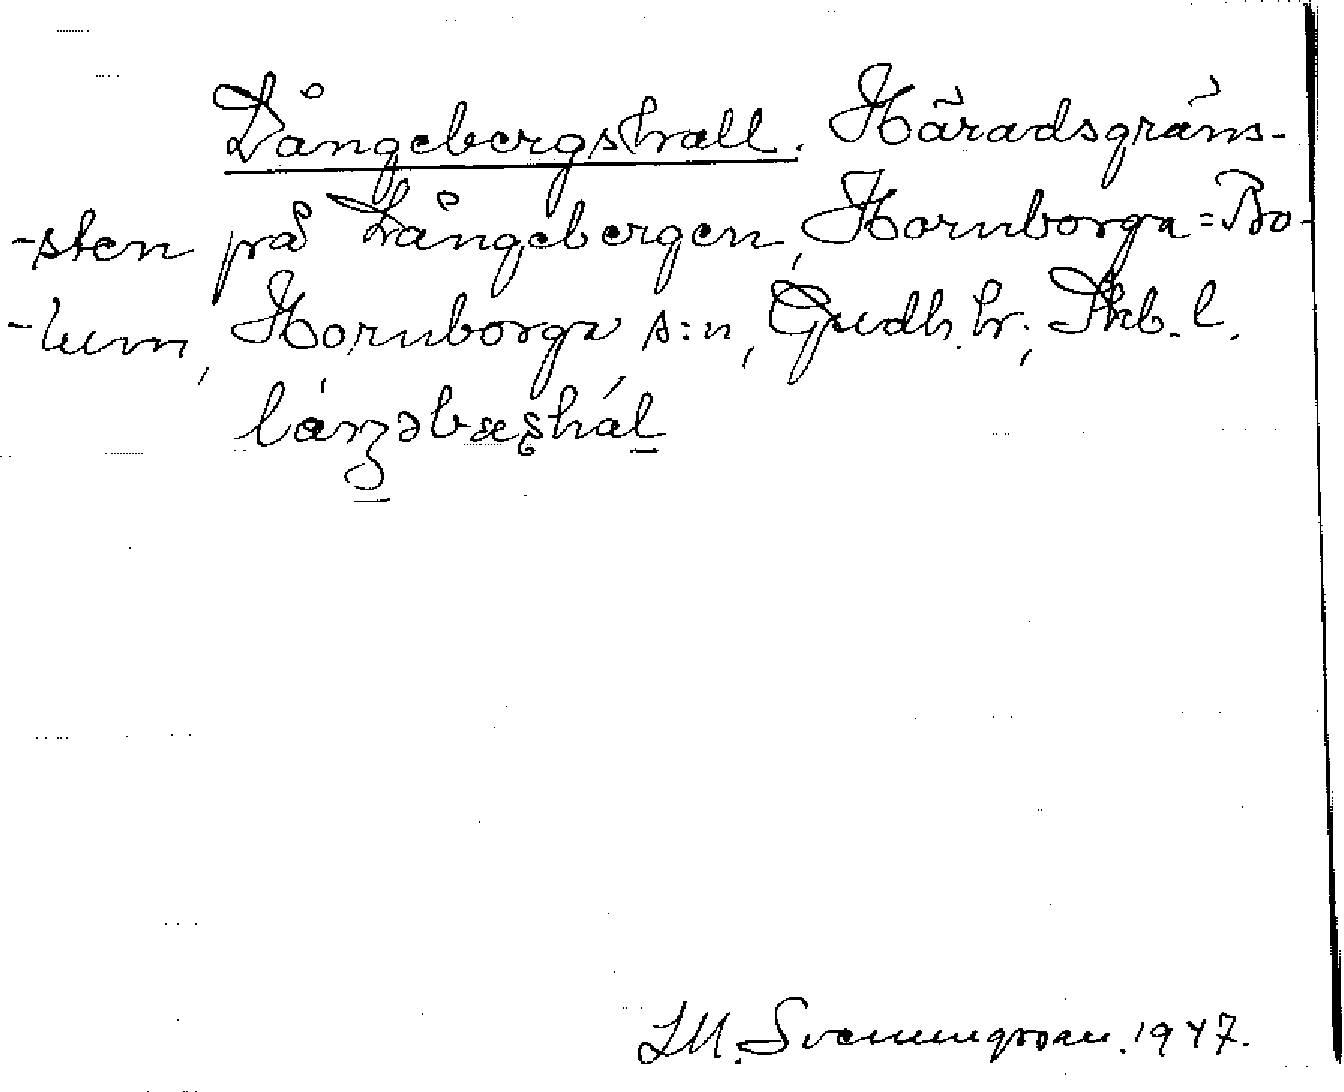 Långebergshall. Häradsgräns-
-sten på Långebergen, Hornborga=Bo-
-lum, Hornborga s:n, Gudh. hr; Skb. l.
Svenningsson. 1947.